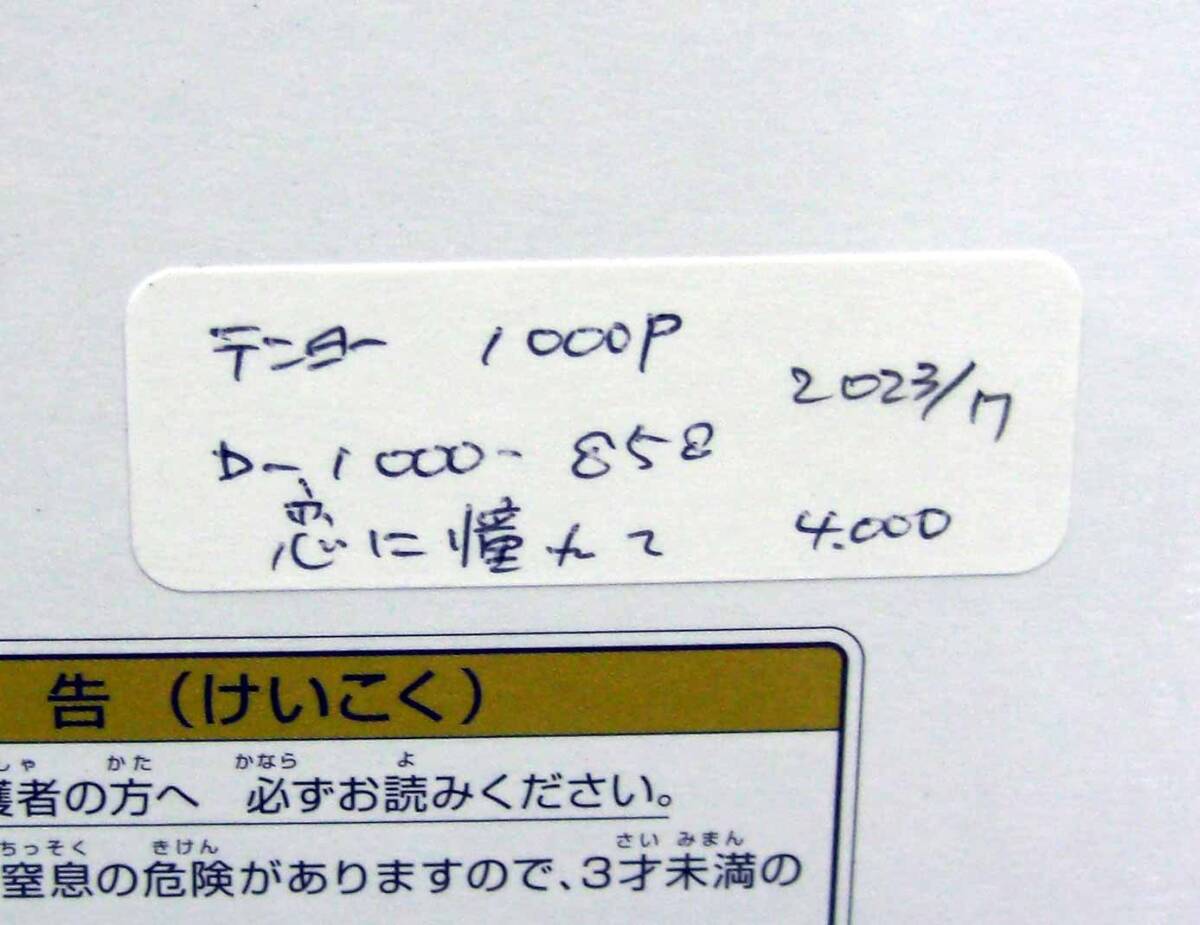 テンヨー 1000P
2023/7
D-1000-858
恋に憧れて 4.000
告（けいこく）
しゃ かた かなら よ
護者の方へ 必ずお読みください。
ちっそく きけん さい みまん
窒息の危険がありますので、3才未満の